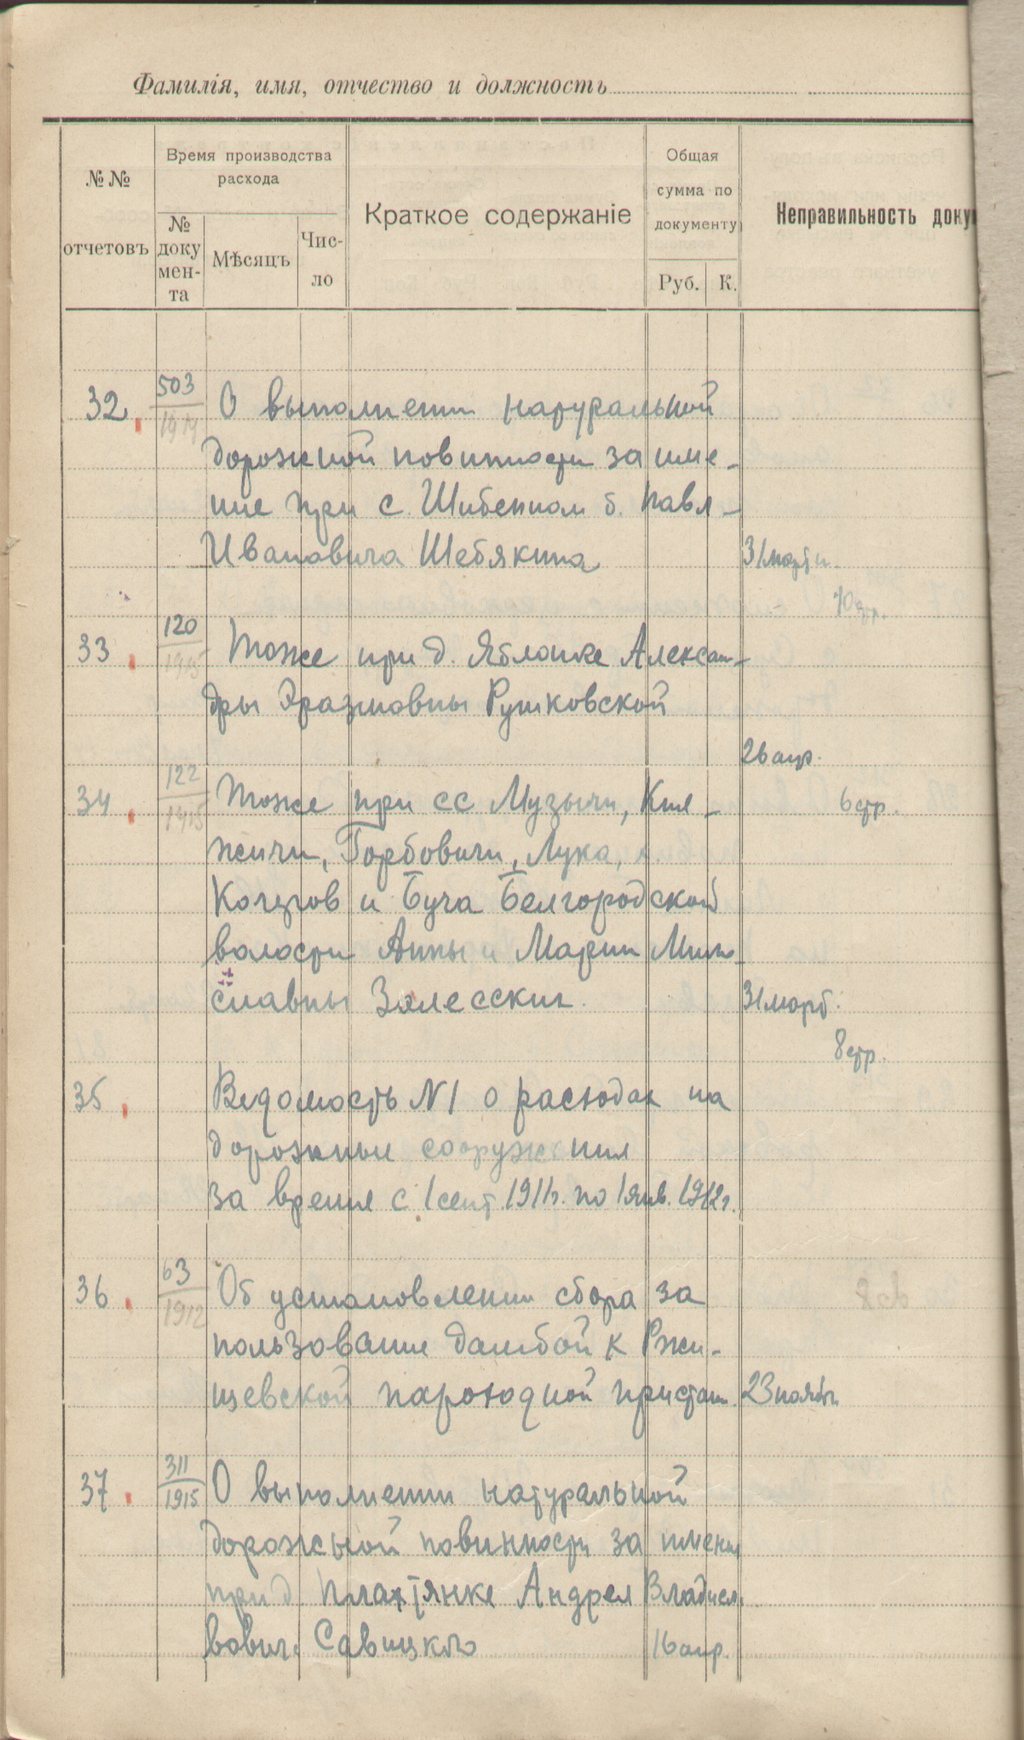 Фамилія, имя, отчество и должность
№№ отчетовъ
Время производства расхода
№ доку мен- та
Мѣсяцъ
Чис- ло
Краткое содержаніе
Общая сумма по документу
Руб. К.
Неправильность доку
32. 503/1914 О выполнении натуральной
дорожной повинности за име-
ние при с. Шибенном б. Павл-
Ивановича Шебякина 31 марта
10 стр.
33. 120/1915 Тоже при д. Яблонке Алексан-
дры Эразмовны Рутковской
26 апр.
34. 122/1915 Тоже при сс Музычи, Кня- 6 стр.
жичи, Горбовичи, Лука,
и Буча Белгородской
волости Анны и Марии
славны Залесских 31 март.
8 стр.
35. Ведомость N1 о расходах на
дорожные сооружения
за время с 1 сент 1911г. по 1 янв. 1912г.
36. 63/1912 Об установлении сбора за
пользование дамбой к Ржи-
щевской пароходной пристан. 23 ноябр.
37. 311/1915 О выполнении натуральной
дорожной повинности за имени
при д Плахтянке Андрея Владисл.
вович. Савицкго 16 апр.